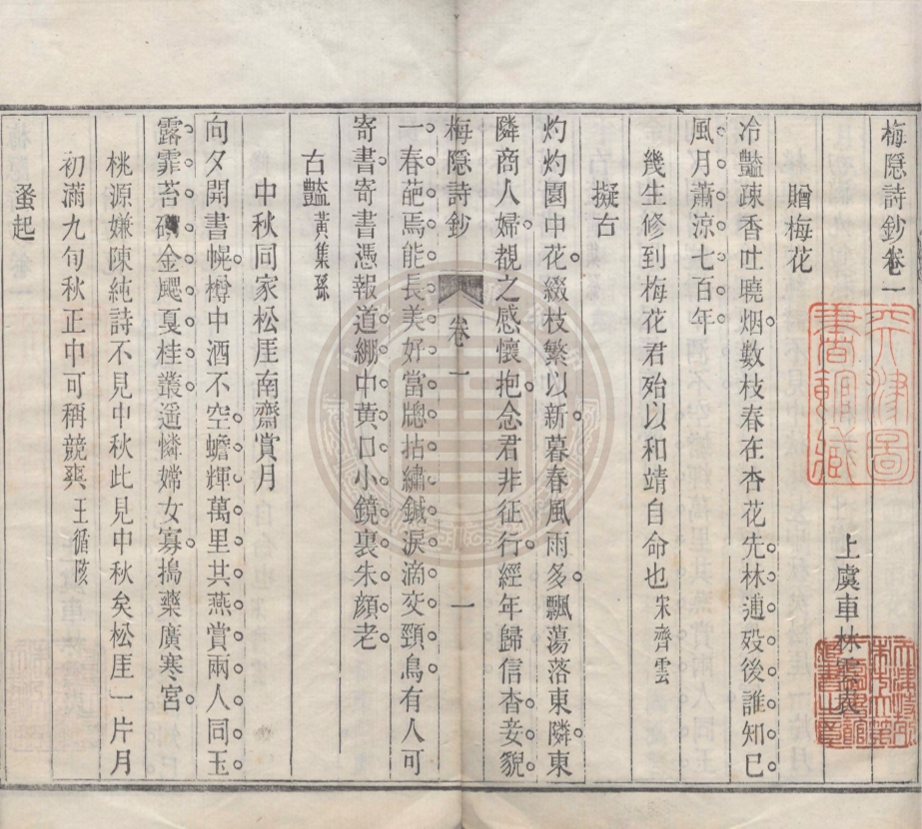 梅隠詩鈔卷一
上虞車林
贈梅花
冷豔疎香吐曉烟數枝春在杏花先林逋歿後誰知已
風月蕭涼七百年
幾生修到梅花君殆以和靖自命也宋齊雲
擬古
灼灼園中花綴枝繁以新暮春風雨多飄蕩落東隣東
隣商人婦覩之感懷抱念君非征行經年歸信杳妾貌
梅隠詩鈔 卷一 一
一春葩焉能長美好當牕拈繡鍼淚滴交頸鳥有人可
寄書寄書憑報道綳中黄口小鏡裏朱顔老
古豔黃集孫
中秋同家松厓南齋賞月
向夕開書幌樽中酒不空蟾輝萬里共燕賞兩人同玉
露霏苔金颸戛桂叢遥憐嫦女寡搗藥廣寒宮
桃源嫌陳純詩不見中秋此見中秋矣松厓一片月
初滿九旬秋正中可稱競爽王循陔
蚤起
天津圖書館藏